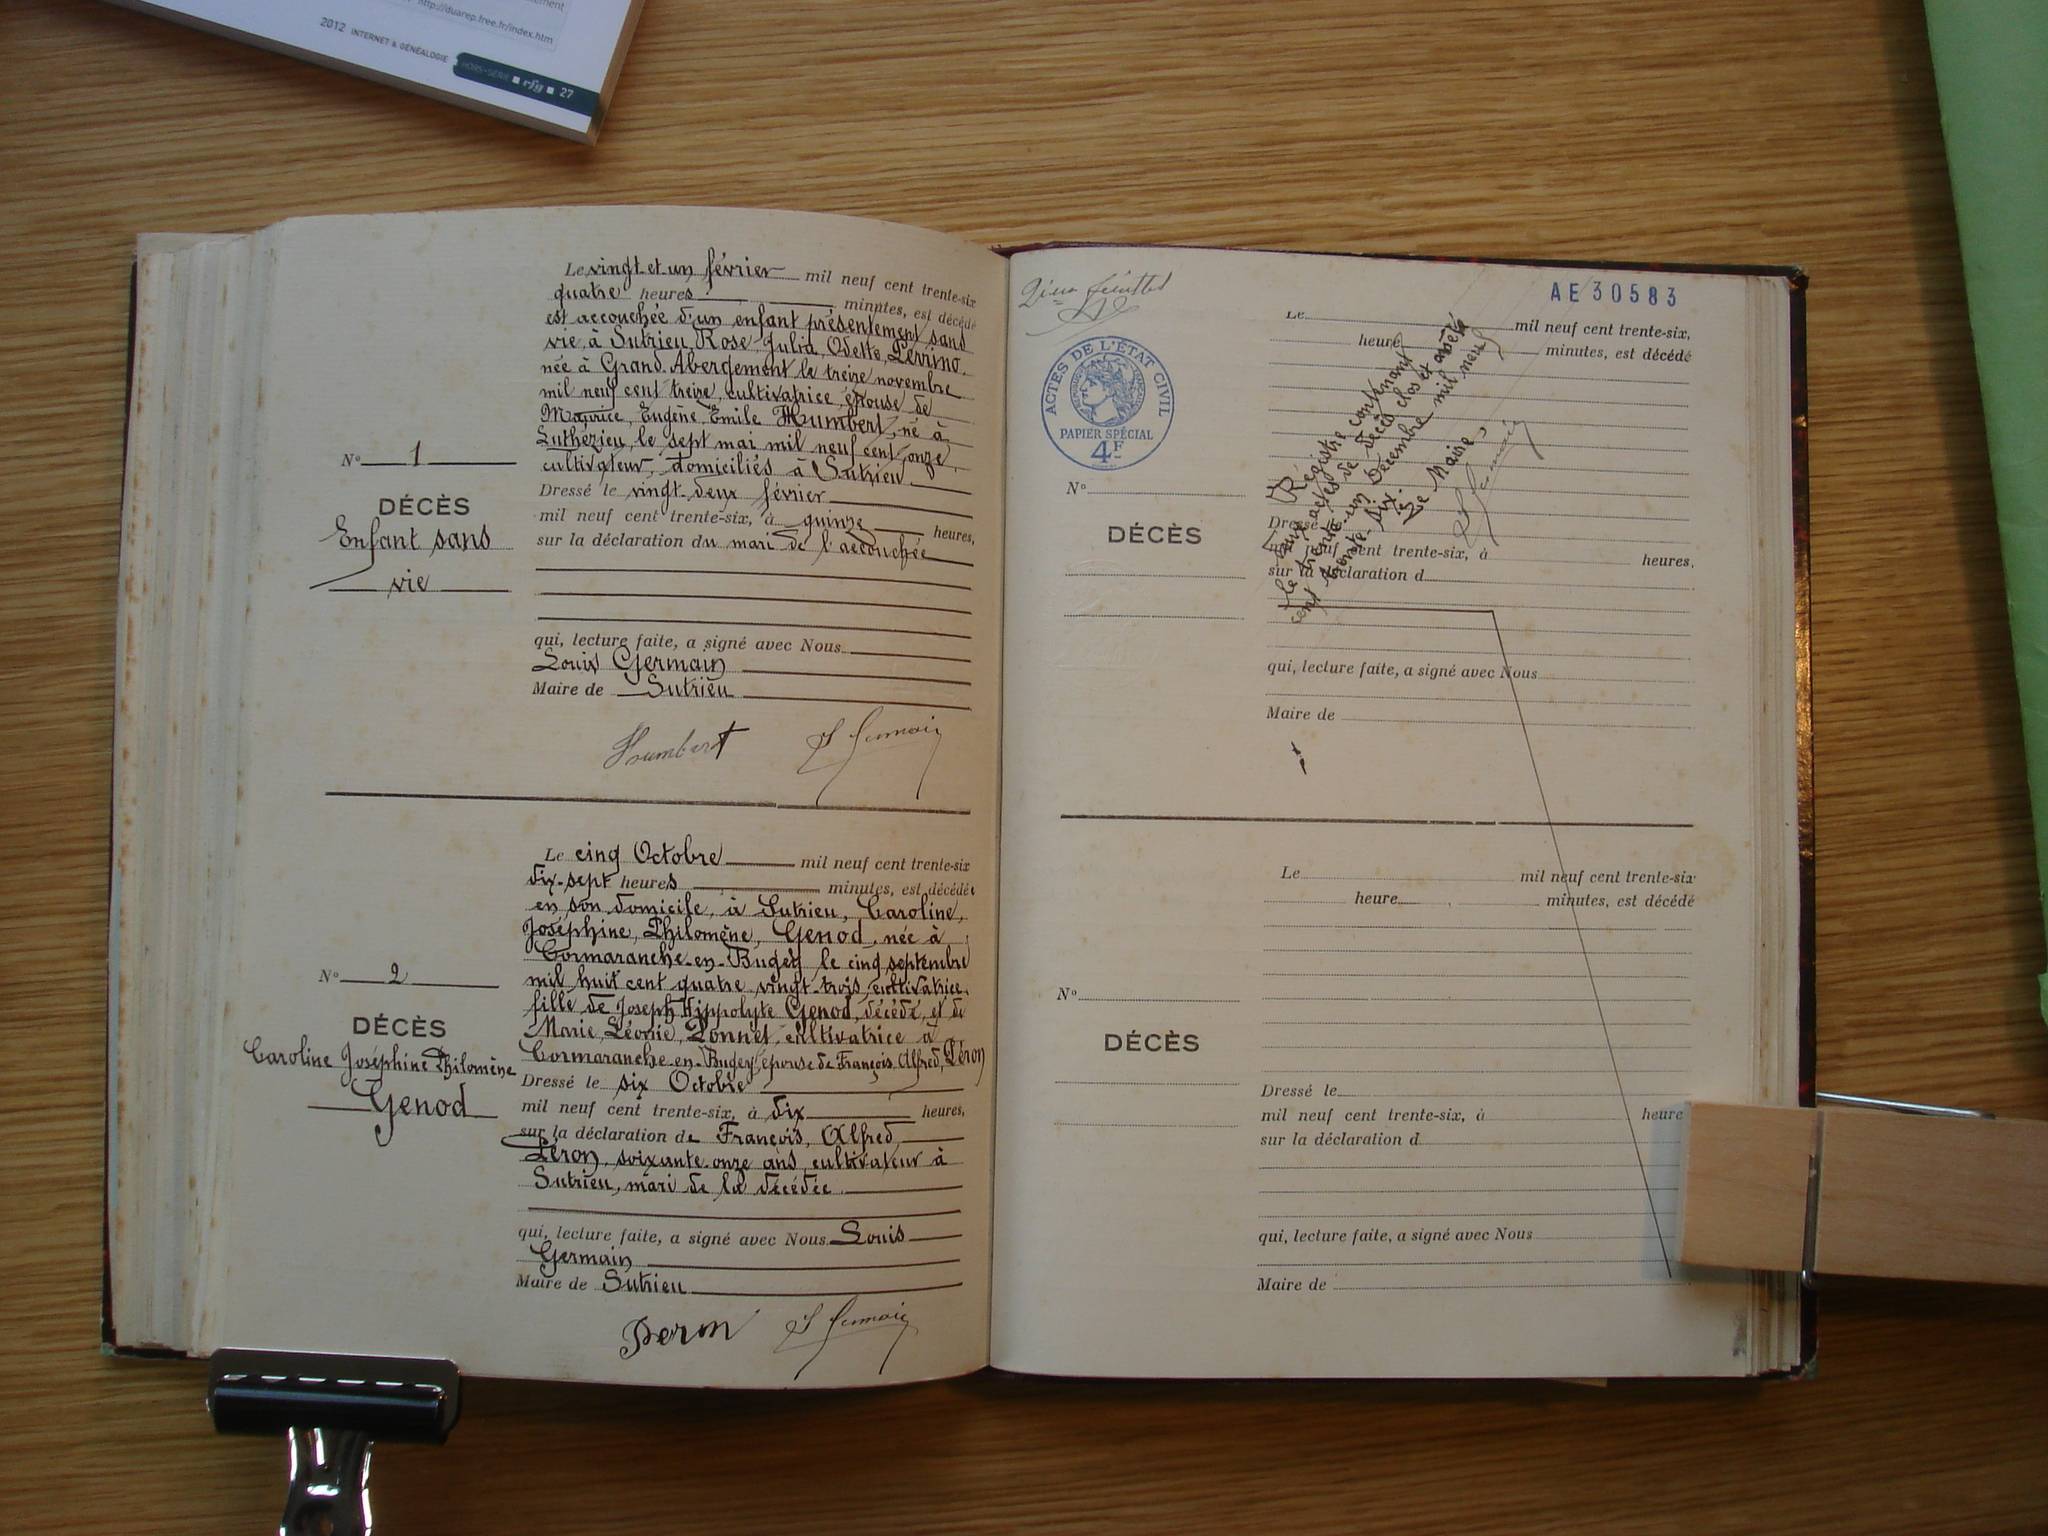 http://duarep.free.fr/index.htm
2012 INTERNET & GÉNÉALOGIE HORS-SÉRIE ■ rfg ■ 27
Le vingt et un février mil neuf cent trente-six
quatre heures minutes, est décédé
est accouchée d'un enfant présentement sans
vie, à Sutrieu, Rose, Julia, Odette,
née à Grand Abergement le treize novembre
mil neuf cent treize, cultivatrice, épouse de
Maurice, Eugène, Emile Humbert, né à
Luthézieu, le sept mai mil neuf cent onze,
cultivateur, domiciliés à Sutrieu
N° 1
DÉCÈS
Enfant sans
vie
Dressé le vingt-deux février
mil neuf cent trente-six, à quinze heures,
sur la déclaration du mari de l'accouchée
qui, lecture faite, a signé avec Nous
Louis Germain
Maire de Sutrieu
Humbert L Germain
Le cinq Octobre mil neuf cent trente-six
dix-sept heures minutes, est décédée
en son domicile, à Sutrieu, Caroline,
Joséphine, Philomène, Genod, née à
Cormaranche-en-Bugey le cinq septembre
mil huit cent quatre vingt-trois, cultivatrice,
fille de Joseph Hippolyte Genod, décédé, et de
Marie, Léonie, Ponnet, cultivatrice à
Cormaranche-en-Bugey, épouse de François, Alfred, Péron
N° 2
DÉCÈS
Caroline Joséphine Philomène
Genod
Dressé le six Octobre
mil neuf cent trente-six, à dix heures,
sur la déclaration de François, Alfred,
Péron, soixante-onze ans, cultivateur à
Sutrieu, mari de la décédée
qui, lecture faite, a signé avec Nous Louis
Germain
Maire de Sutrieu
Peron L Germain
AE 30583
ACTES DE L'ÉTAT CIVIL
PAPIER SPÉCIAL
4F
Le mil neuf cent trente-six,
heure minutes, est décédé
N°
DÉCÈS
Registre contenant
deux actes de décès clos et arrêté
le trente-un Décembre mil neuf
cent trente-six.
Le Maire,
L Germain
Dressé le
mil neuf cent trente-six, à heures,
sur la déclaration d
qui, lecture faite, a signé avec Nous
Maire de
Le mil neuf cent trente-six
heure minutes, est décédé
N°
DÉCÈS
Dressé le
mil neuf cent trente-six, à heure
sur la déclaration d
qui, lecture faite, a signé avec Nous
Maire de